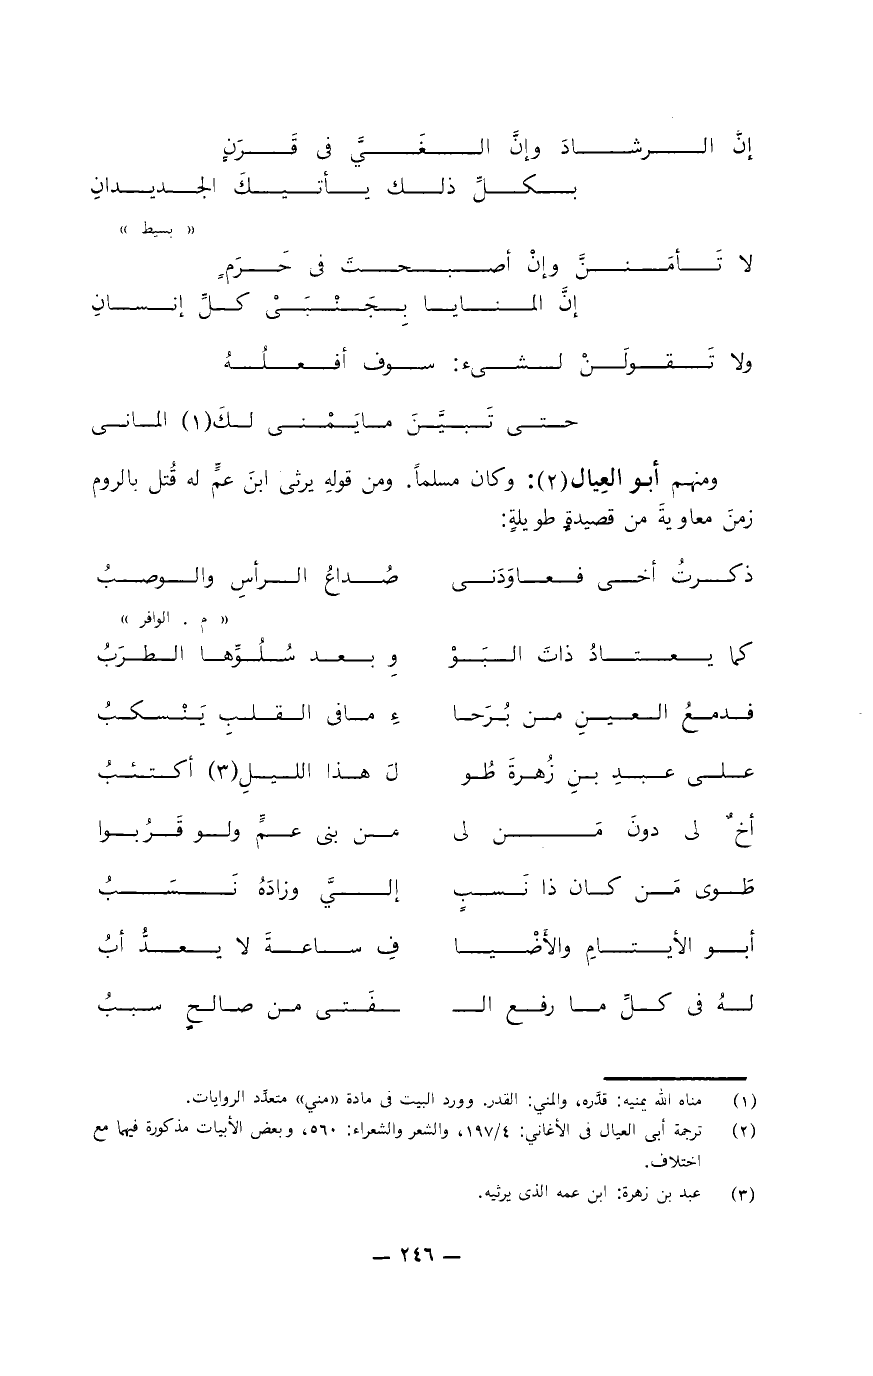 إنَّ الرشادَ وإنَّ الغَيَّ فى قَرَنٍ
بكلِّ ذلك يأتيكَ الجديدانِ
« بسيط »
لا تَأمَننَّ وإنْ أصبحتَ فى حَرَمٍ
إنَّ المنايا بِجَنْبَىْ كلِّ إنسانِ
ولا تَقولَنْ لشىء: سوف أفعلُهُ
حتى تَبيَّنَ مايَمْنى لكَ(١) المانى
ومنهم أبو العِيال(٢): وكان مسلماً. ومن قولهِ يرثى ابنَ عمٍّ له قُتل بالروم
زمنَ معاويةَ من قصيدةٍ طويلةٍ:
ذكرتُ أخى فعاوَدَنى صُداعُ الرأسِ والوصبُ
« م . الوافر »
كما يعتادُ ذاتَ البَوْ وِبعد سُلُوِّها الطرَبُ
فدمعُ العينِ من بُرَحا ءِ مافى القلبِ يَنْسكبُ
على عبدِ بنِ زُهرةَ طُو لَ هذا الليلِ(٣) أكتئبُ
أخٌ لى دونَ مَن لى من بنى عمٍّ ولو قَرُبوا
طَوى مَن كان ذا نَسبٍ إليَّ وزادَهُ نَسَبُ
أبو الأيتامِ والأضْيا فِ ساعةَ لا يعدُّ أبُ
لهُ فى كلِّ ما رفع الـ ـفَتى من صالحٍ سببُ
(١) مناه الله يمنيه: قدَّره، والمني: القدر. وورد البيت فى مادة «مني» متعدّد الروايات.
(٢) ترجمة أبى العيال فى الأغاني: ١٩٧/٤، والشعر والشعراء: ٥٦٠، وبعض الأبيات مذكورة فيها مع
اختلاف.
(٣) عبد بن زهرة: ابن عمه الذى يرثيه.
— ٢٤٦ —